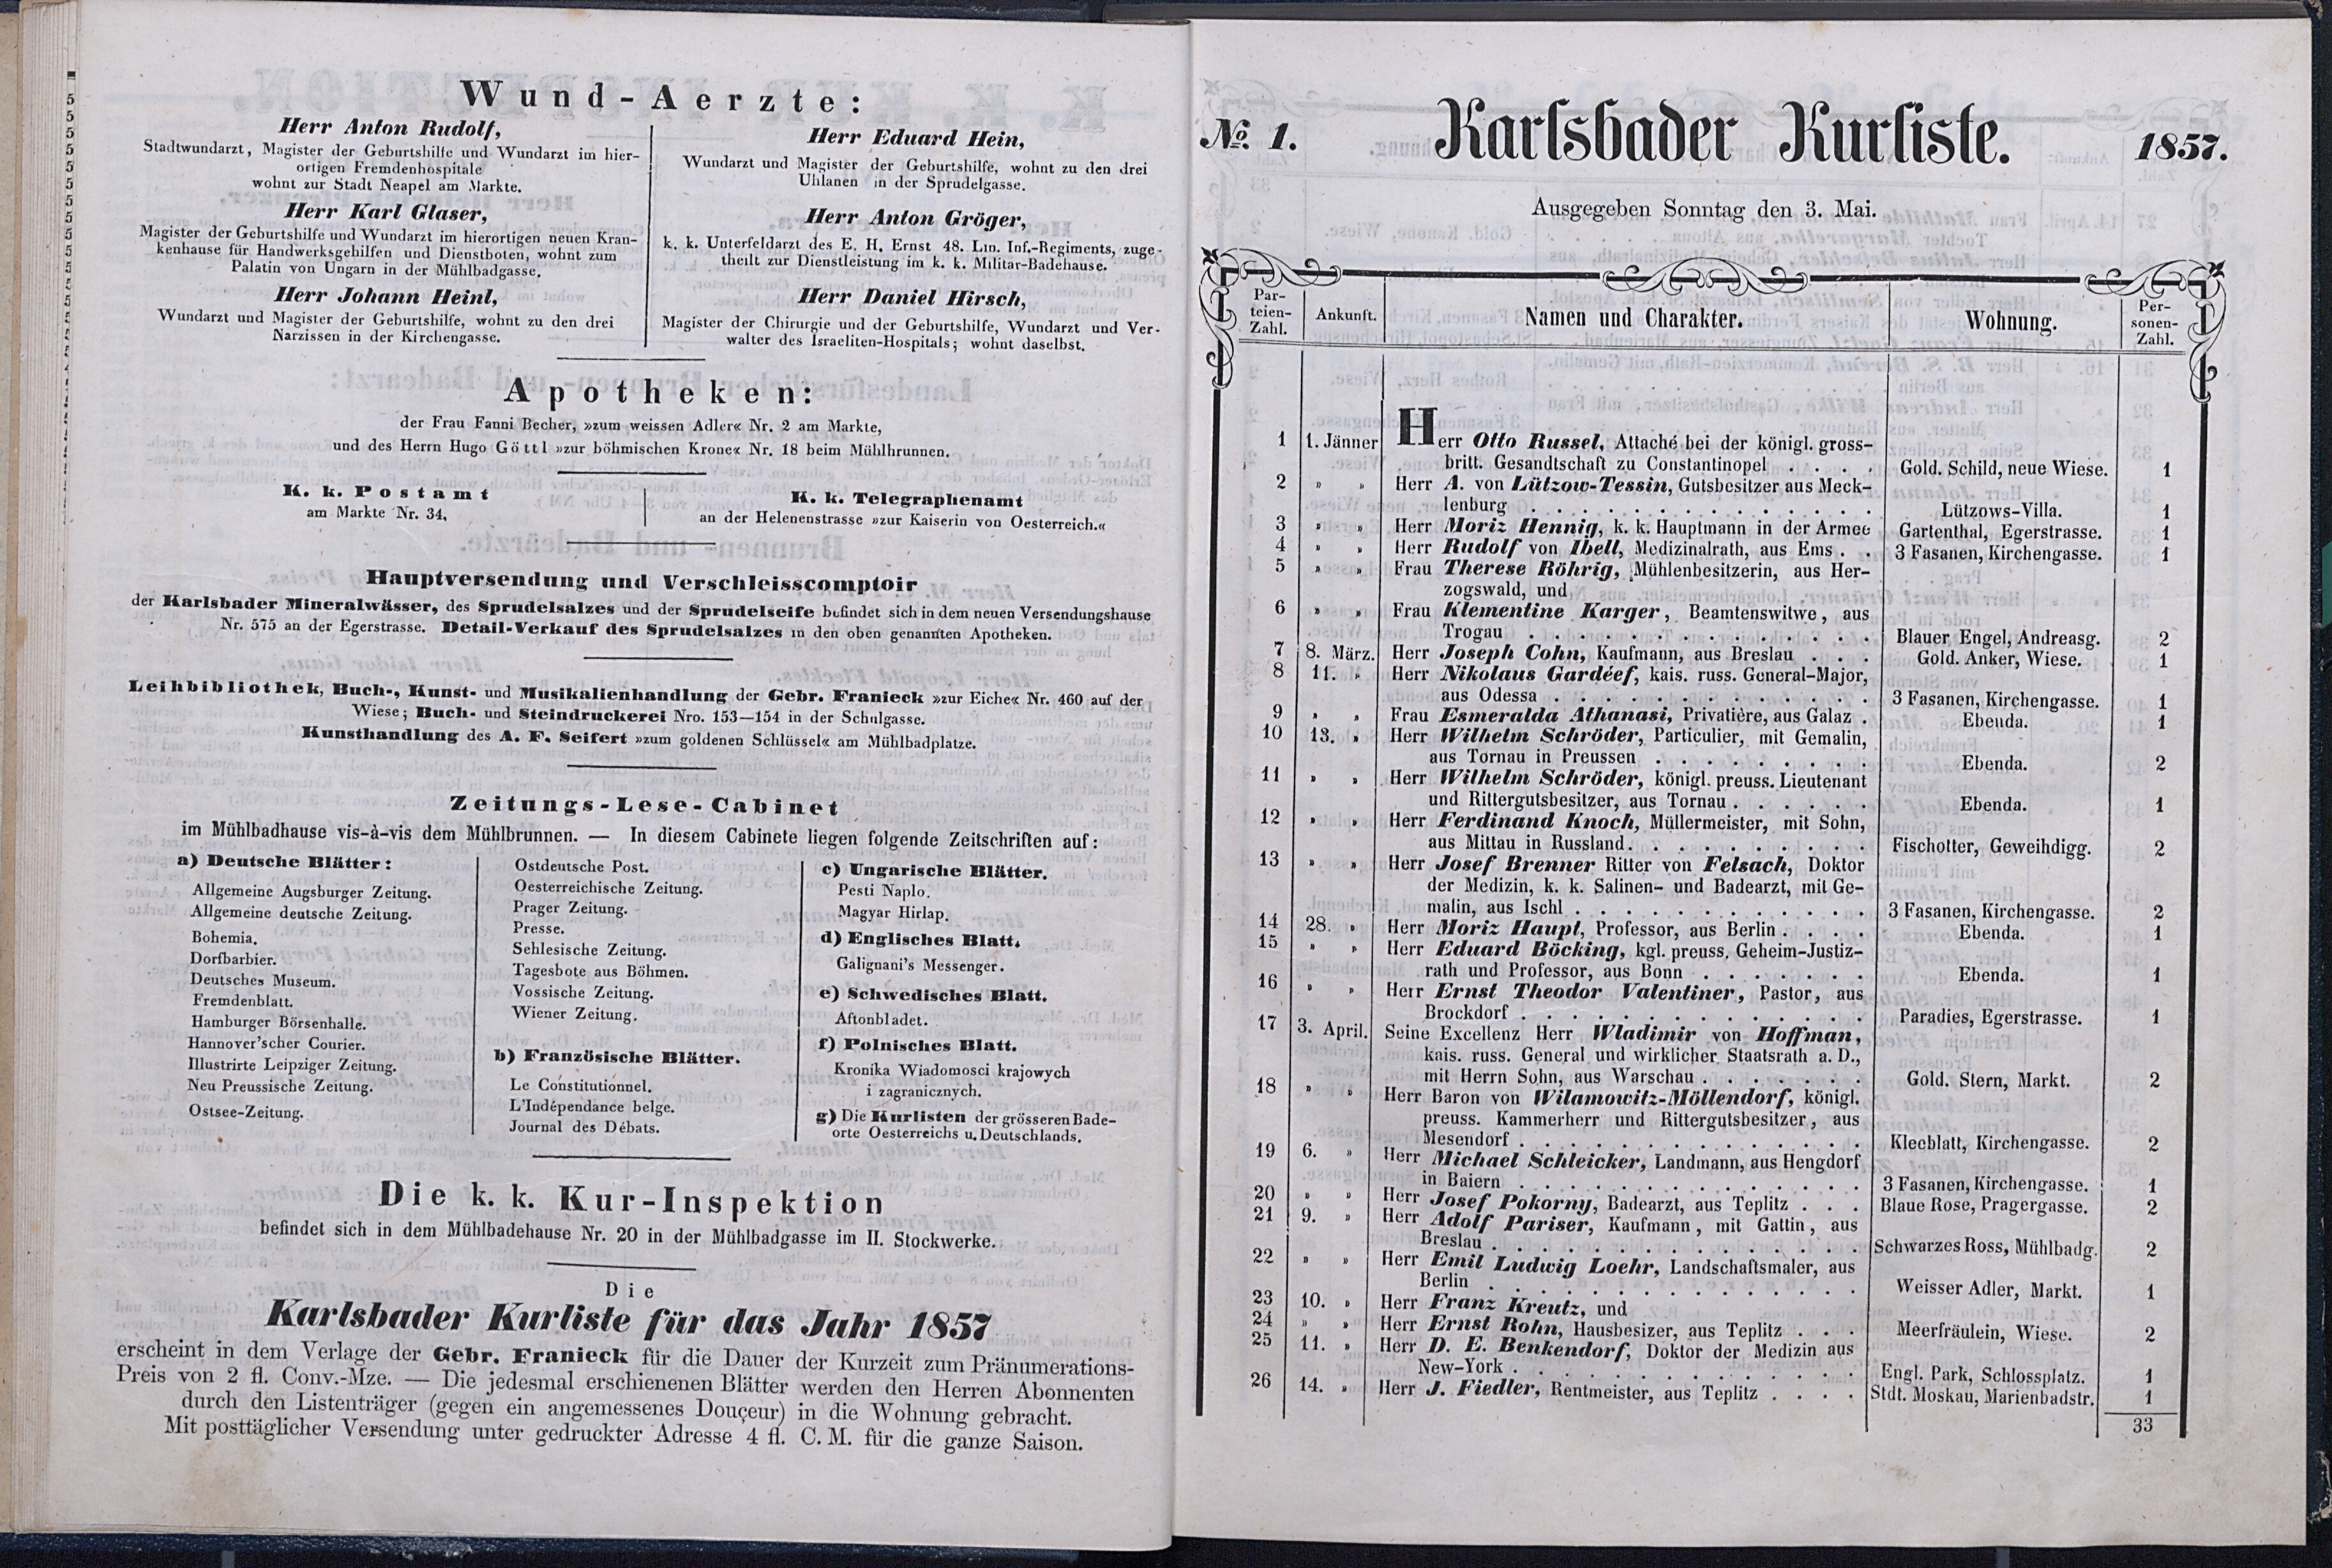 Wund-Aerzte:
Herr Anton Rudolf,
Stadtwundarzt, Magister der Geburtshilfe und Wundarzt im hier-
ortigen Fremdenhospitale
wohnt zur Stadt Neapel am Markte.
Herr Karl Glaser,
Magister der Geburtshilfe und Wundarzt im hierortigen neuen Kran-
kenhause für Handwerksgehilfen und Dienstboten, wohnt zum
Palatin von Ungarn in der Mühlbadgasse.
Herr Johann Heinl,
Wundarzt und Magister der Geburtshilfe, wohnt zu den drei
Narzissen in der Kirchengasse.
Herr Eduard Hein,
Wundarzt und Magister der Geburtshilfe, wohnt zu den drei
Uhlanen in der Sprudelgasse.
Herr Anton Gröger,
k. k. Unterfeldarzt des E. H. Ernst 48. Lin. Inf.-Regiments, zuge-
theilt zur Dienstleistung im k. k. Militar-Badehause.
Herr Daniel Hirsch,
Magister der Chirurgie und der Geburtshilfe, Wundarzt und Ver-
walter des Israeliten-Hospitals; wohnt daselbst.
Apotheken:
der Frau Fanni Becher, »zum weissen Adler« Nr. 2 am Markte,
und des Herrn Hugo Göttl »zur böhmischen Krone« Nr. 18 beim Mühlbrunnen.
K. k. Postamt
am Markte Nr. 34,
K. k. Telegraphenamt
an der Helenenstrasse »zur Kaiserin von Oesterreich.«
Hauptversendung und Verschleisscomptoir
der Karlsbader Mineralwässer, des Sprudelsalzes und der Sprudelseife befindet sich in dem neuen Versendungshause
Nr. 575 an der Egerstrasse. Detail-Verkauf des Sprudelsalzes in den oben genannten Apotheken.
Leihbibliothek, Buch-, Kunst- und Musikalienhandlung der Gebr. Franieck »zur Eiche« Nr. 460 auf der
Wiese; Buch- und Steindruckerei Nro. 153—154 in der Schulgasse.
Kunsthandlung des A. F. Seifert »zum goldenen Schlüssel« am Mühlbadplatze.
Zeitungs-Lese-Cabinet
im Mühlbadhause vis-à-vis dem Mühlbrunnen. — In diesem Cabinete liegen folgende Zeitschriften auf:
a) Deutsche Blätter:
Allgemeine Augsburger Zeitung.
Allgemeine deutsche Zeitung.
Bohemia.
Dorfbarbier.
Deutsches Museum.
Fremdenblatt.
Hamburger Börsenhalle.
Hannover'scher Courier.
Illustrirte Leipziger Zeitung.
Neu Preussische Zeitung.
Ostsee-Zeitung.
Ostdeutsche Post.
Oesterreichische Zeitung.
Prager Zeitung.
Presse.
Schlesische Zeitung.
Tagesbote aus Böhmen.
Vossische Zeitung.
Wiener Zeitung.
b) Französische Blätter.
Le Constitutionnel.
L'Indépendance belge.
Journal des Débats.
c) Ungarische Blätter.
Pesti Naplo.
Magyar Hirlap.
d) Englisches Blatt.
Galignani's Messenger.
e) Schwedisches Blatt.
Aftonbladet.
f) Polnisches Blatt.
Kronika Wiadomosci krajowych
i zagranicznych.
g) Die Kurlisten der grösseren Bade-
orte Oesterreichs u. Deutschlands.
Die k. k. Kur-Inspektion
befindet sich in dem Mühlbadehause Nr. 20 in der Mühlbadgasse im II. Stockwerke.
Die
Karlsbader Kurliste für das Jahr 1857
erscheint in dem Verlage der Gebr. Franieck für die Dauer der Kurzeit zum Pränumerations-
Preis von 2 fl. Conv.-Mze. — Die jedesmal erschienenen Blätter werden den Herren Abonnenten
durch den Listenträger (gegen ein angemessenes Douçeur) in die Wohnung gebracht.
Mit posttäglicher Versendung unter gedruckter Adresse 4 fl. C. M. für die ganze Saison.
No. 1. Karlsbader Kurliste. 1857.
Ausgegeben Sonntag den 3. Mai.
Par-
teien-
Zahl.
Ankunft.
Namen und Charakter.
Wohnung.
Per-
sonen-
Zahl.
1 1. Jänner Herr Otto Russel, Attaché bei der königl. gross-
britt. Gesandtschaft zu Constantinopel . . . . Gold. Schild, neue Wiese. 1
2 » » Herr A. von Lützow-Tessin, Gutsbesitzer aus Meck-
lenburg . . . . Lützows-Villa. 1
3 » » Herr Moriz Hennig, k. k. Hauptmann in der Armee Gartenthal, Egerstrasse. 1
4 » » Herr Rudolf von Ibell, Medizinalrath, aus Ems . . 3 Fasanen, Kirchengasse. 1
5 » » Frau Therese Röhrig, Mühlenbesitzerin, aus Her-
zogswald, und
6 » » Frau Klementine Karger, Beamtenswitwe, aus
Trogau . . . . Blauer Engel, Andreasg. 2
7 8. März. Herr Joseph Cohn, Kaufmann, aus Breslau . . . Gold. Anker, Wiese. 1
8 11. » Herr Nikolaus Gardéef, kais. russ. General-Major,
aus Odessa . . . . 3 Fasanen, Kirchengasse. 1
9 » » Frau Esmeralda Athanasi, Privatière, aus Galaz . Ebenda. 1
10 13. » Herr Wilhelm Schröder, Particulier, mit Gemalin,
aus Tornau in Preussen . . . . Ebenda. 2
11 » » Herr Wilhelm Schröder, königl. preuss. Lieutenant
und Rittergutsbesitzer, aus Tornau . . . . Ebenda. 1
12 » » Herr Ferdinand Knoch, Müllermeister, mit Sohn,
aus Mittau in Russland. . . . Fischotter, Geweihdigg. 2
13 » » Herr Josef Brenner Ritter von Felsach, Doktor
der Medizin, k. k. Salinen- und Badearzt, mit Ge-
malin, aus Ischl . . . . 3 Fasanen, Kirchengasse. 2
14 28. » Herr Moriz Haupt, Professor, aus Berlin . . . . Ebenda. 1
15 » » Herr Eduard Böcking, kgl. preuss. Geheim-Justiz-
rath und Professor, aus Bonn . . . . Ebenda. 1
16 » » Herr Ernst Theodor Valentiner, Pastor, aus
Brockdorf . . . . Paradies, Egerstrasse. 1
17 3. April. Seine Excellenz Herr Wladimir von Hoffman,
kais. russ. General und wirklicher Staatsrath a. D.,
mit Herrn Sohn, aus Warschau . . . . Gold. Stern, Markt. 2
18 » » Herr Baron von Wilamowitz-Möllendorf, königl.
preuss. Kammerherr und Rittergutsbesitzer, aus
Mesendorf . . . . Kleeblatt, Kirchengasse. 2
19 6. » Herr Michael Schleicker, Landmann, aus Hengdorf
in Baiern . . . . 3 Fasanen, Kirchengasse. 1
20 » » Herr Josef Pokorny, Badearzt, aus Teplitz . . . Blaue Rose, Pragergasse. 2
21 9. » Herr Adolf Pariser, Kaufmann, mit Gattin, aus
Breslau . . . . Schwarzes Ross, Mühlbadg. 2
22 » » Herr Emil Ludwig Loehr, Landschaftsmaler, aus
Berlin . . . . Weisser Adler, Markt. 1
23 10. » Herr Franz Kreutz, und
24 » » Herr Ernst Rohn, Hausbesizer, aus Teplitz . . . Meerfräulein, Wiese. 2
25 11. » Herr D. E. Benkendorf, Doktor der Medizin aus
New-York . . . . Engl. Park, Schlossplatz. 1
26 14. » Herr J. Fiedler, Rentmeister, aus Teplitz . . . . Stdt. Moskau, Marienbadstr. 1
33